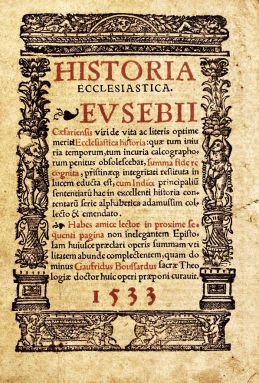 HISTORIA
ECCLESIASTICA.
EVSEBII
Cæsariensis viri de vita ac literis optime
meriti: Ecclesiastica historia: quæ tum iniu
ria temporum, tum incuria calcographo
rum penitus obsolescebat, summa fide re
cognita, pristinæq; integritati restituta in
lucem educta est, cum Indice principaliũ
sententiarũ hac in excellenti historia con-
tentarũ serie alphabetica adamussim col-
lecto & emendato.
Habes amice lector in proxime se-
quenti pagina non inelegantem Episto-
lam huiusce præclari operis summam vti
litatem abunde complectentem, quam do
minus Gaufridus Boussardus sacræ Theo
logiæ doctor huic operi præponi curauit.
1533